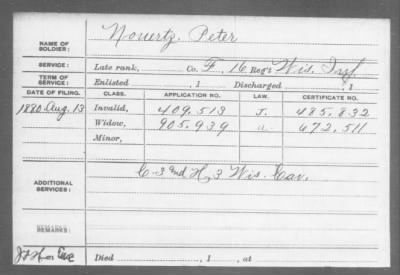 NAME OF SOLDIER: Nouertz, Peter
SERVICE: Late rank, Co. F, 16 Reg't Wis. Inf.
TERM OF SERVICE: Enlisted , 1 Discharged , 1
DATE OF FILING. CLASS. APPLICATION NO. LAW. CERTIFICATE NO.
1880 Aug. 13 Invalid, 409.513 J. 485.832
Widow, 905.939 a. 672.511
Minor,
ADDITIONAL SERVICES: C. 3 and H, 3 Wis. Cav.
REMARKS:
Died , 1 , at